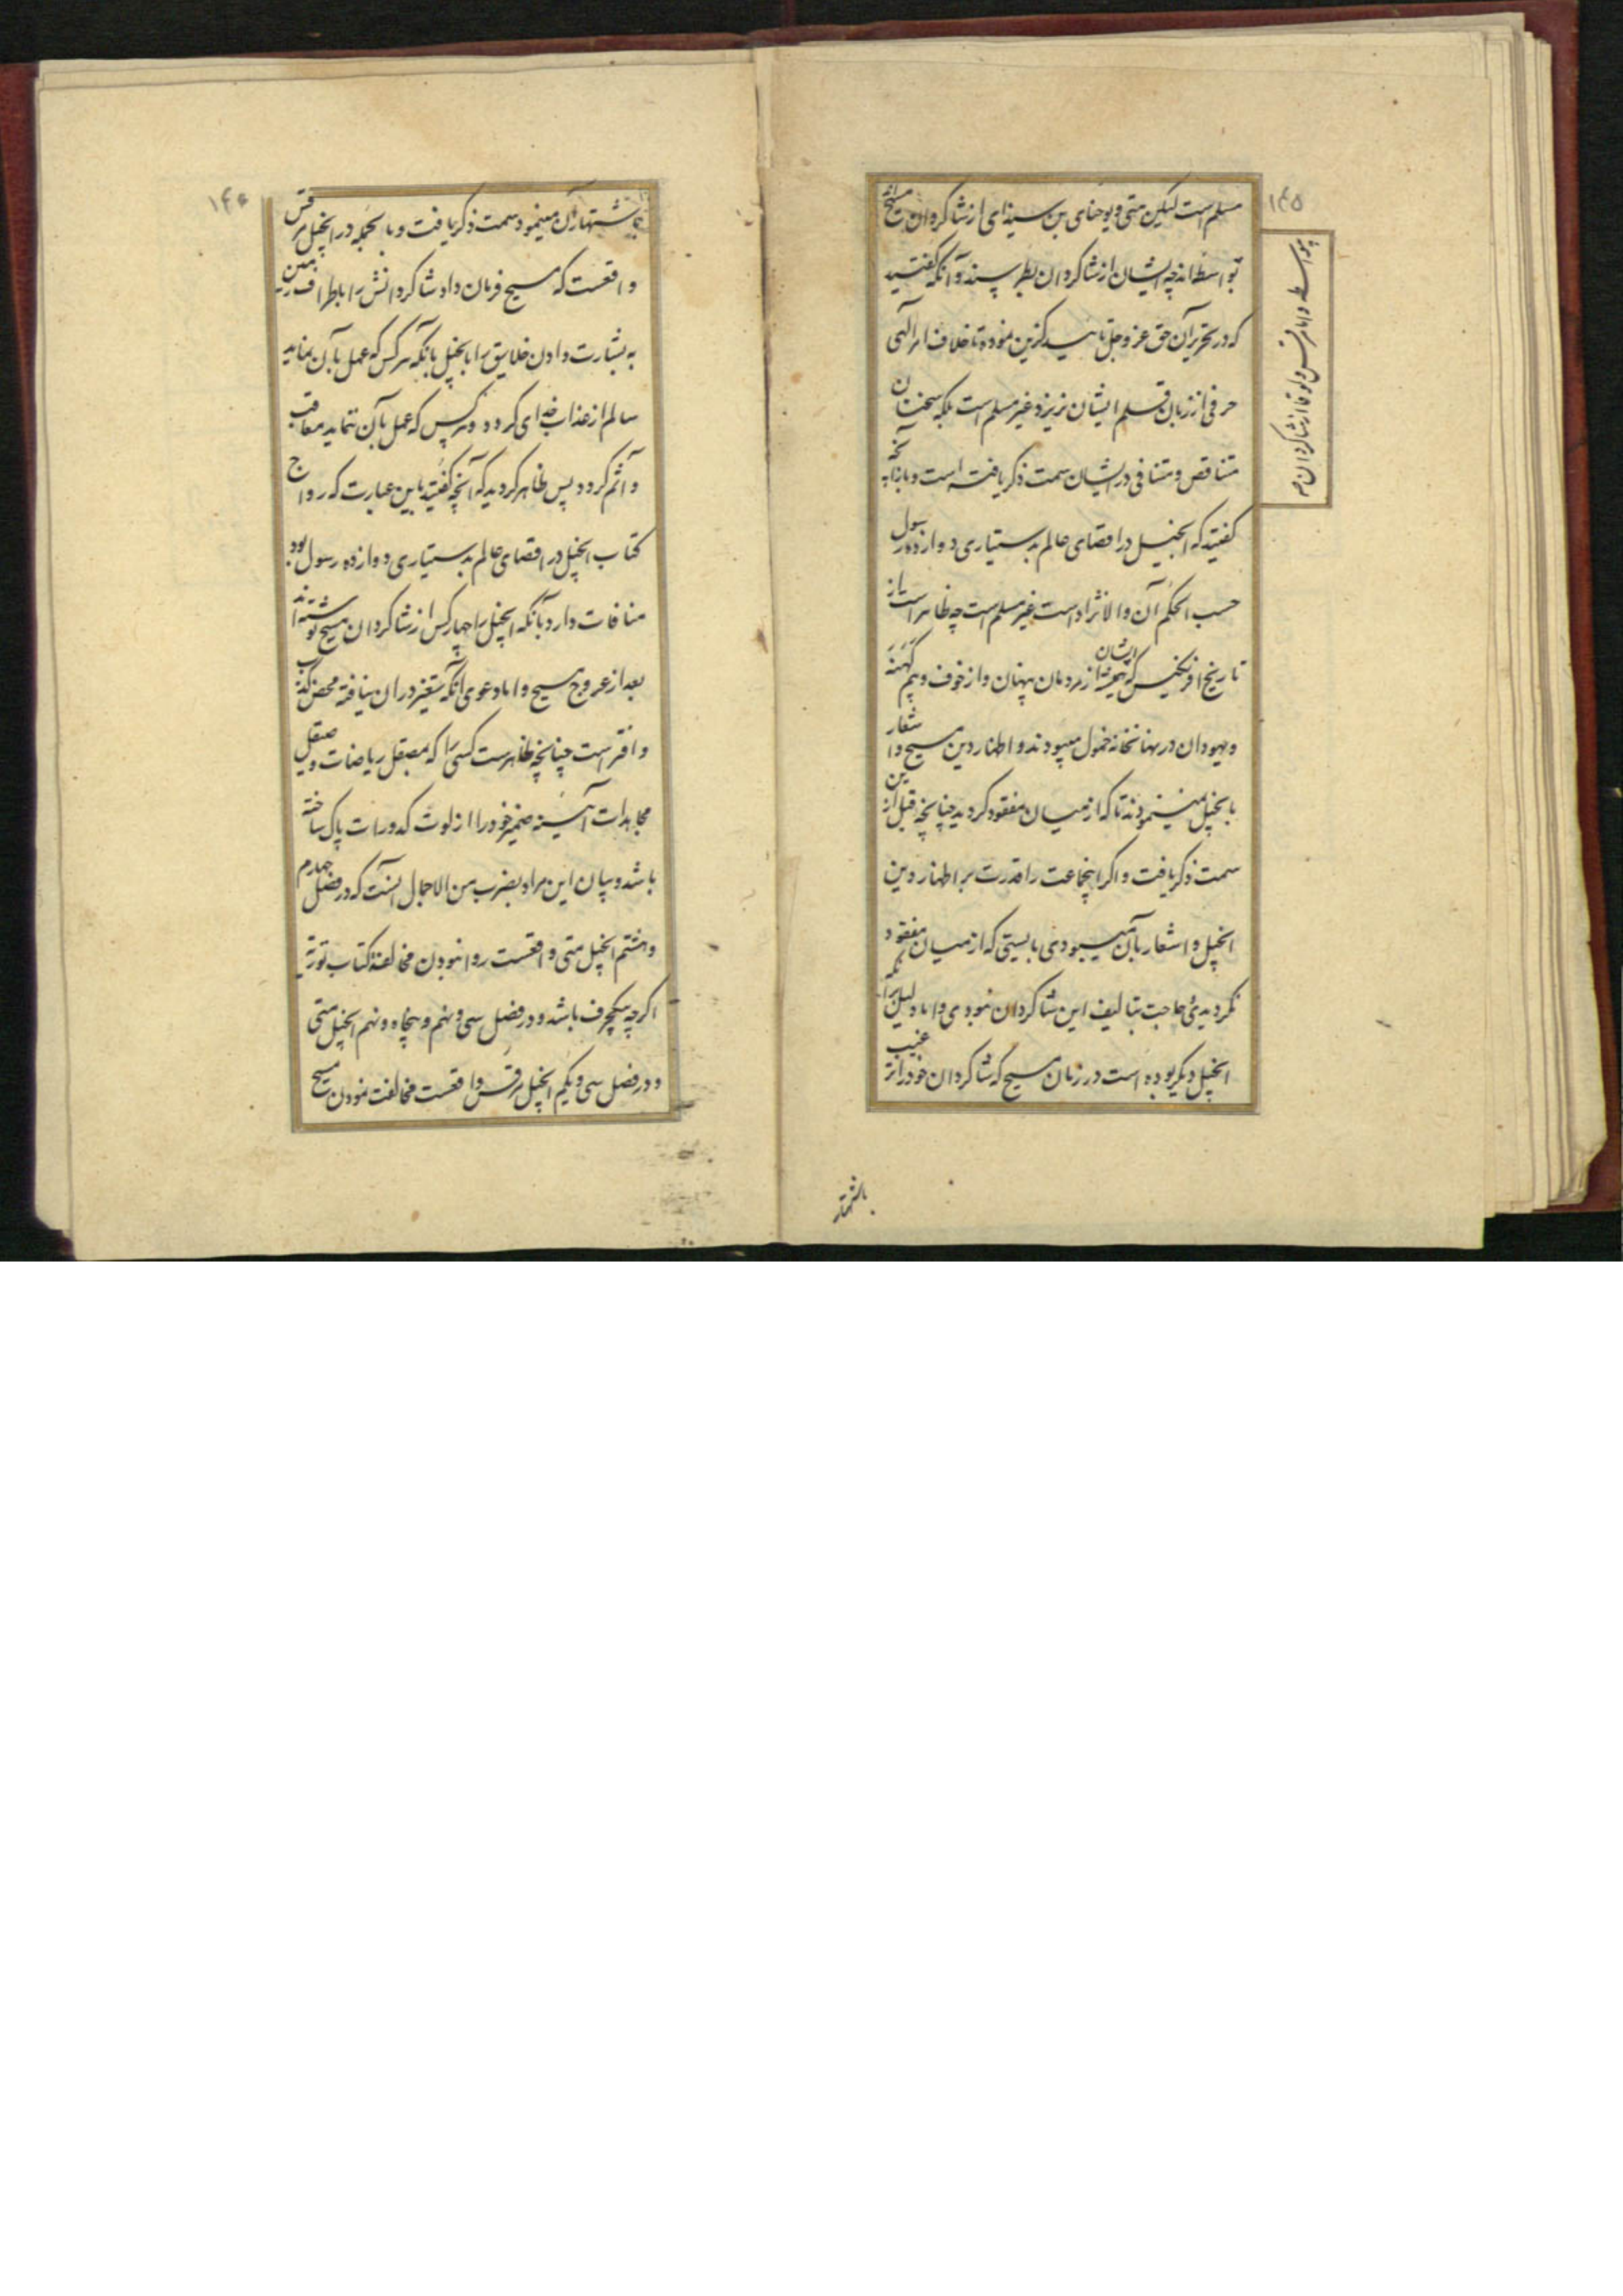 ۱۴۵
مسلم است لیکن متی و یوحنای بن سبذای از شاکردان مسیح اند
بواسطه اند چه ایشان از شاکردان بطرس‌ند و آنکه کفتید
که در تحریر آن حق عز و جل تایید کزین نموده تا خلاف امر الهی
حرفی از زبان قلم ایشان نریزد غیر مسلم است بلکه سخنان
متناقض و متنافی در ایشان سمت ذکر یافته است و باز آنچه
کفتید که انجیل در اقصای عالم بدستیاری دوازده رسول
حسب الحکم آن والانژاد است غیر مسلم است چه ظاهر است از
تاریخ افرنکیس که همیشه ایشان از مردمان پنهان و از خوف و بیم کهنه
و یهودان در نهانخانه خمول میبودند و اظهار دین مسیح و اشعار
بانجیل نمینمودند تا که از میان مفقود کردید چنانچه قبل ازین
سمت ذکر یافت و اکر اینجماعت را قدرت بر اظهار دین
انجیل و اشعار بآن میبودی بایستی که از میان مفقود
نکردیدی و حاجت بتالیف این شاکردان نبودی و اما دلیل بر آنکه
انجیل دیکر بوده است در زمان مسیح که شاکردان خود را ترغیب
بواسطه و اما مرقس و لوقا از شاکردان مـ
باشتهار
۱۴۶
باشتهار آن مینمود سمت ذکر یافت و بالجمله در انجیل مرقس
واقعست که مسیح فرمان داد شاکردانش را باطراف زمین
به بشارت دادن خلایق را بانجیل بانکه هرکس که عمل بآن نماید
سالم از عذاب خدای کردد و هرکس که عمل بآن ننماید معاقب
و آثم کردد پس ظاهر کردید که آنچه کفتید باین عبارت که رواج
کتاب انجیل در اقصای عالم بدستیاری دوازده رسول بود
منافات دارد بآنکه انجیل را چهار کس از شاکردان مسیح نوشته‌اند
بعد از عروج مسیح و اما دعوی آنکه تغییر در ان نیافته محض کذب
و افتر است چنانچه ظاهرست کسی را که بصیقل ریاضات و صیقل
مجاهدات آیینه ضمیر خود را از لوث کدورات پاک ساخته
باشد و بیان این مراد بضرب من الاجمال آنست که در فصل چهارم
و هشتم انجیل متی واقعست روا نبودن مخالفة کتاب توریة
اکرچه بیکحرف باشد و در فصل سی و نهم و پنجاه و نهم انجیل متی
و در فصل سی و یکم انجیل مرقس واقعست مخالفت نمودن مسیح